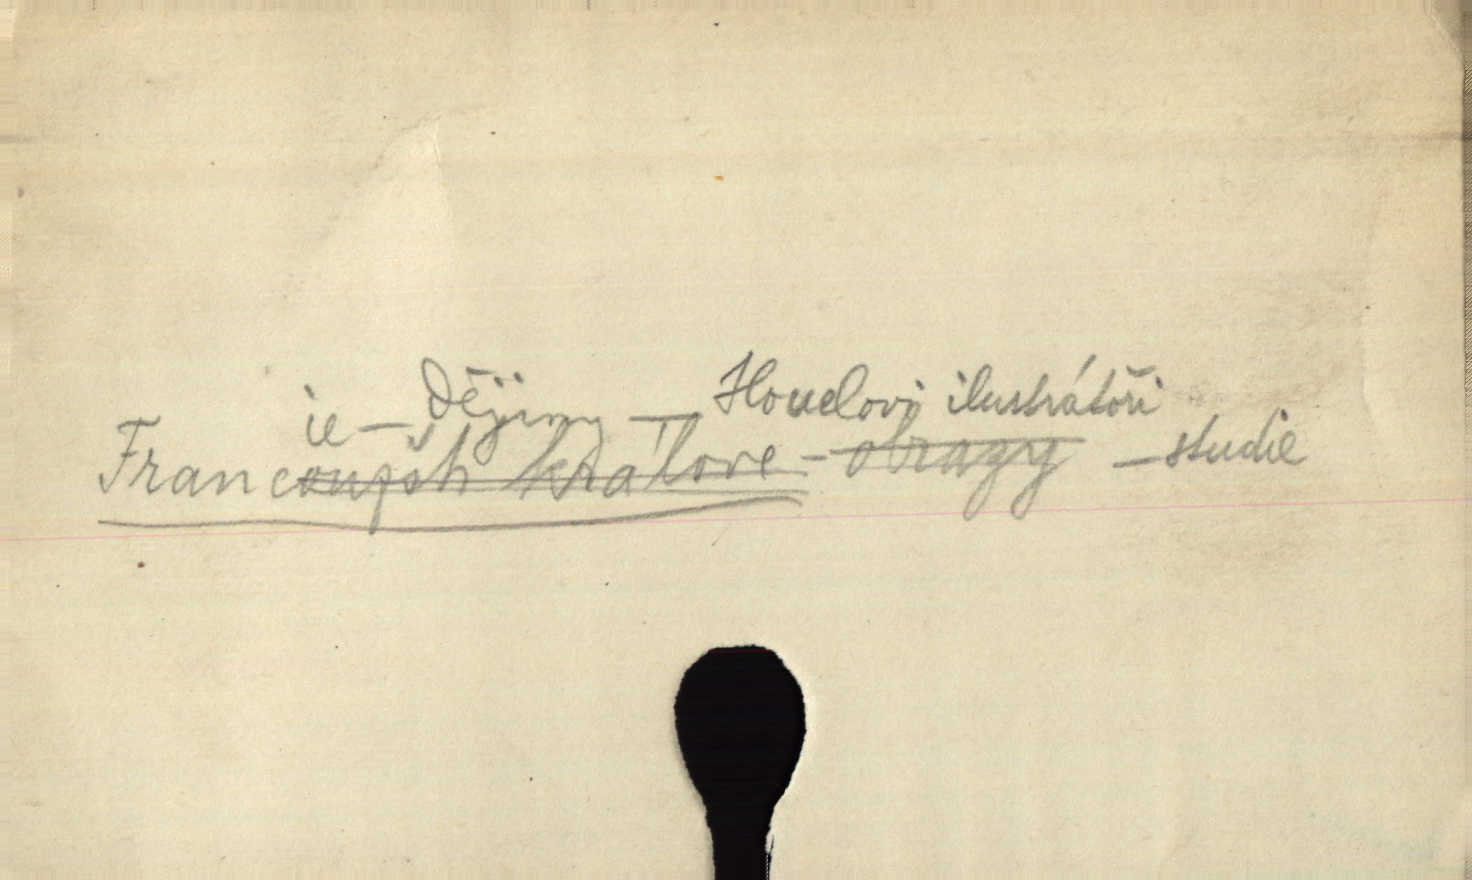 ie – Dějiny – Houdlovi ilustrátoři
Francouzští králové – obrazy – studie